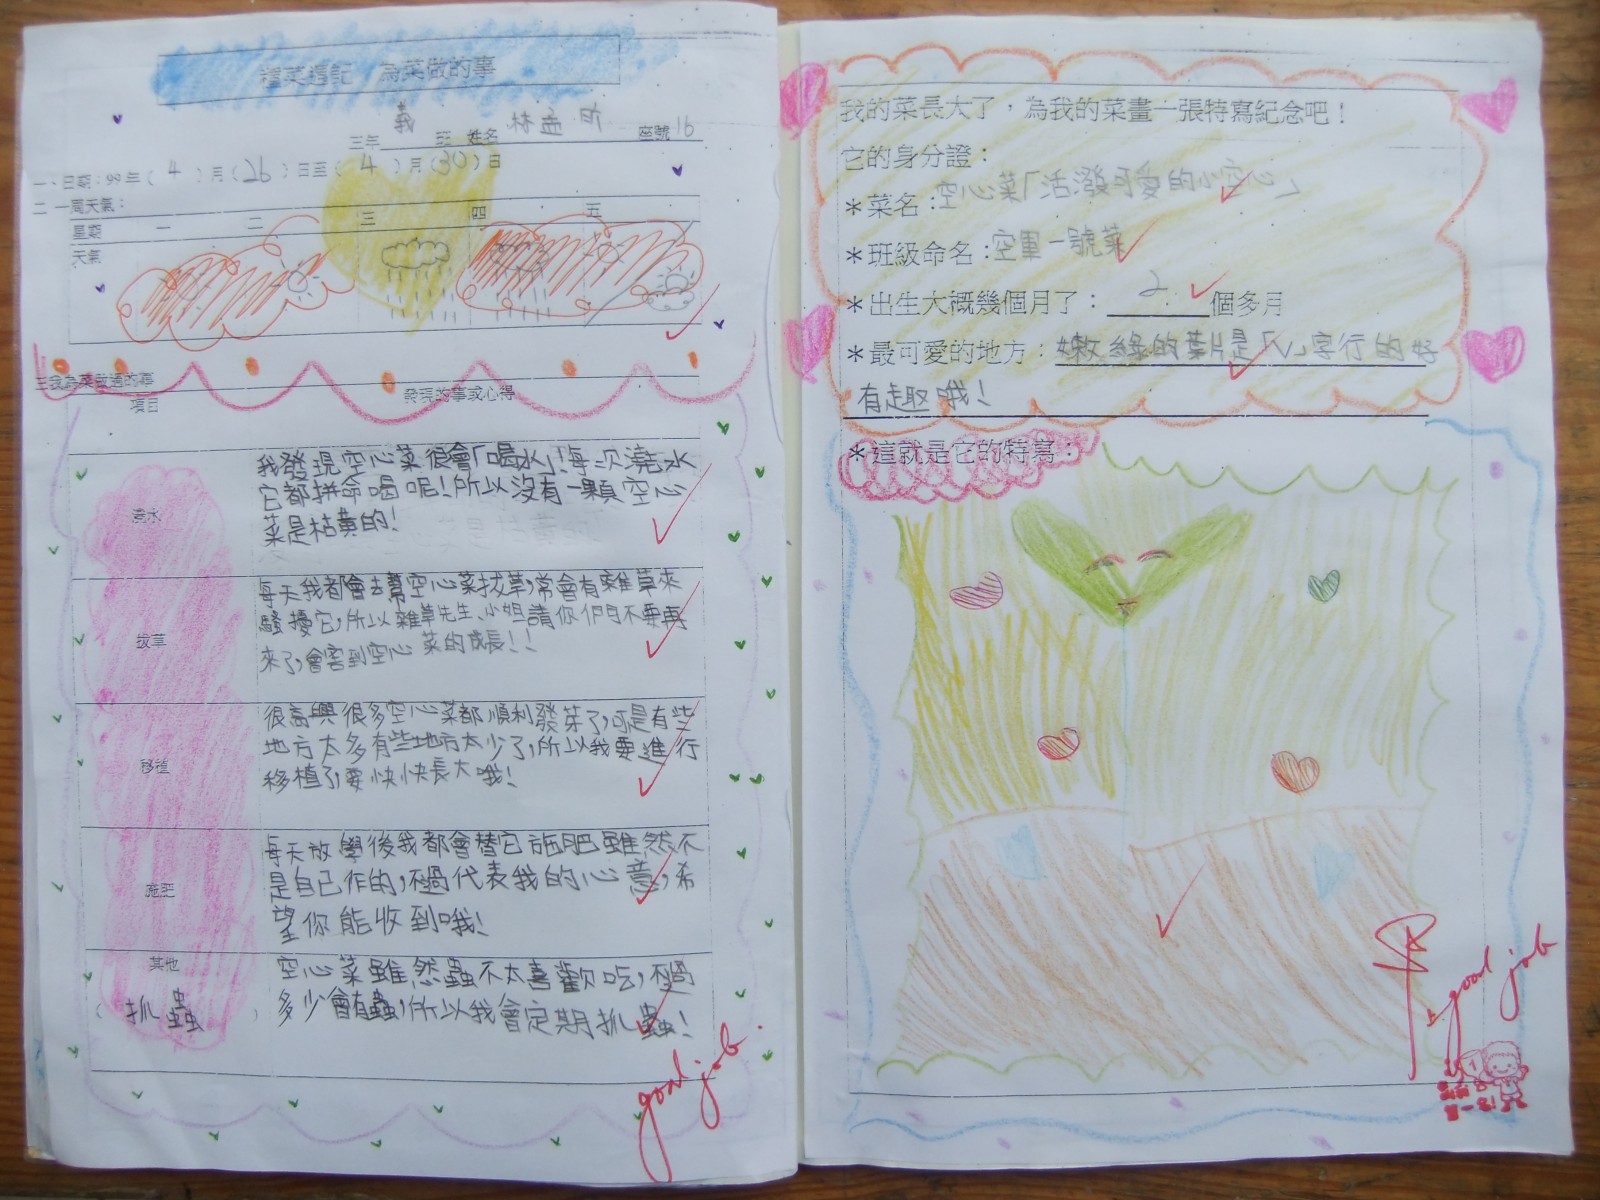 種菜週記 為菜做的事
三年 義 班 姓名 林孟 座號 16
一、日期：99年( 4 )月(26)日至( 4 )月(30)日
二 一周天氣：
星期 一 二 三 四 五
天氣
三我為菜做過的事
項目 發現的事或心得
澆水
我發現空心菜很會「喝水」!每次澆水
它都拼命喝呢!所以沒有一顆空心
菜是枯黃的!
拔草
每天我都會去幫空心菜拔草,常會有雜草來
騷擾它,所以雜草先生、小姐請你們不要再
來了,會害到空心菜的成長!!
移植
很高興很多空心菜都順利發芽了,可是有些
地方太多有些地方太少了,所以我要進行
移植了,要快快長大哦!
施肥
每天放學後我都會替它施肥雖然不
是自己作的,不過代表我的心意,希
望你能收到哦!
其他
( 抓蟲 )
空心菜雖然蟲不太喜歡吃,不過
多少會有蟲,所以我會定期抓蟲!
good job.
我的菜長大了，為我的菜畫一張特寫紀念吧！
它的身分證：
＊菜名：空心菜「活潑可愛的小空心」
＊班級命名：空軍一號菜
＊出生大概幾個月了： 2 個多月
＊最可愛的地方：嫩綠的葉片是「V」字行的好
有趣哦!
＊這就是它的特寫：
good job